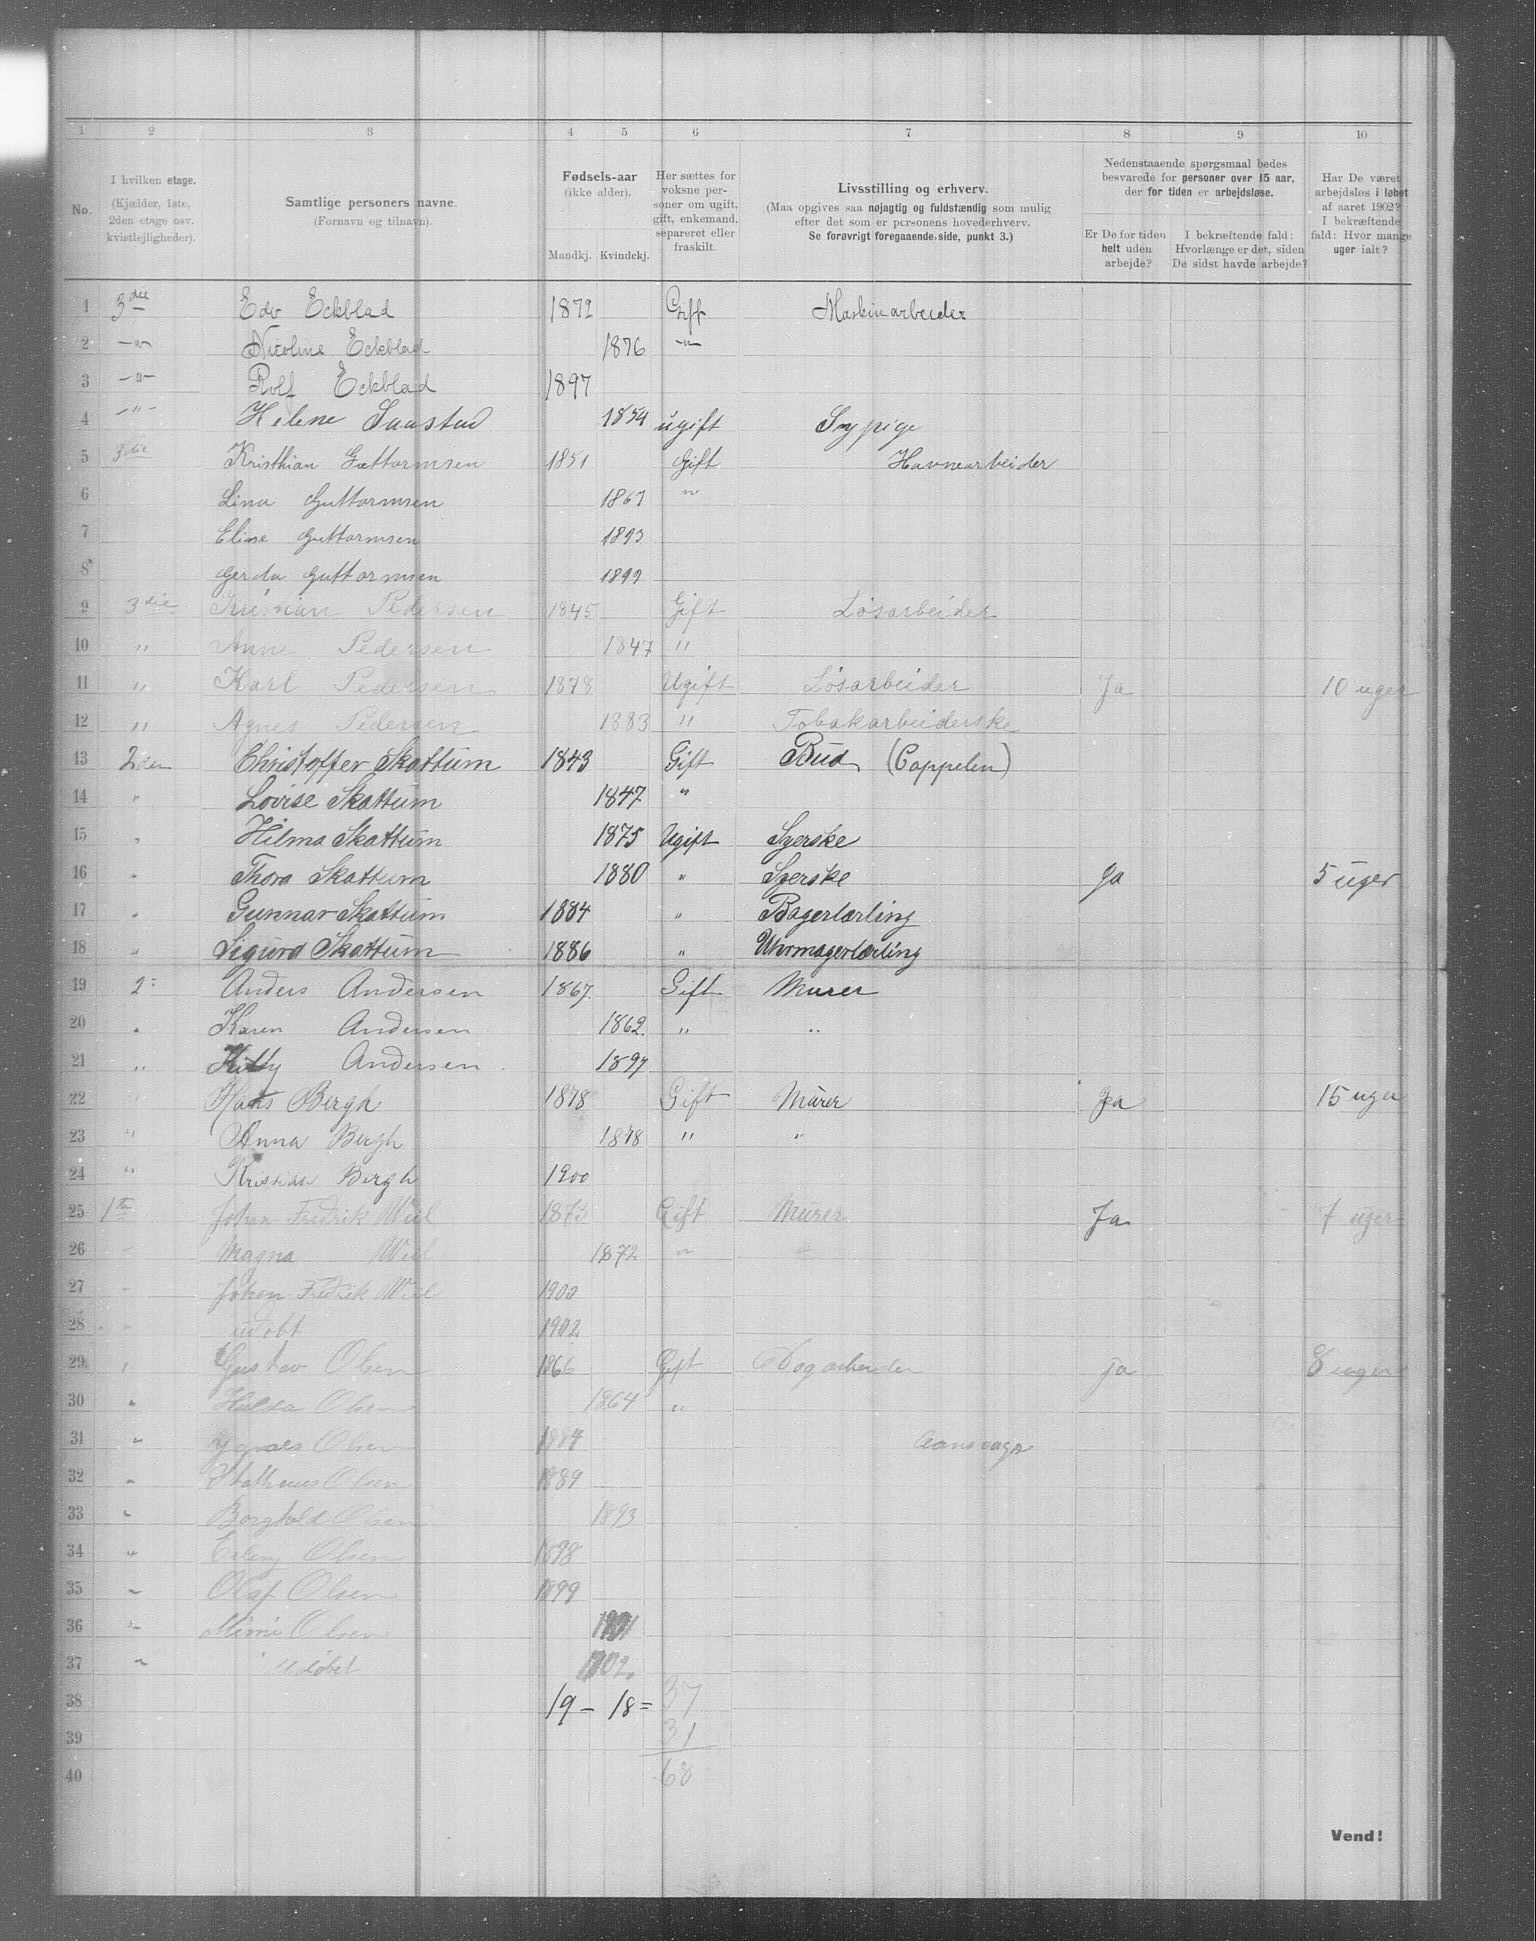 1 2 3 4 5 6 7 8 9 10
No.
I hvilken etage. (Kjælder, 1ste, 2den etage osv. kvistlejligheder).
Samtlige personers navne. (Fornavn og tilnavn).
Fødsels-aar (ikke alder). Mandkj. Kvindekj.
Her sættes for voksne personer om ugift, gift, enkemand, separeret eller fraskilt.
Livsstilling og erhverv. (Maa opgives saa nøjagtig og fuldstændig som mulig efter det som er personens hovederhverv. Se forøvrigt foregaaende side, punkt 3.)
Nedenstaaende spørgsmaal bedes besvarede for personer over 15 aar, der for tiden er arbejdsløse.
Er De for tiden helt uden arbejde?
I bekræftende fald: Hvorlænge er det, siden De sidst havde arbejde?
Har De været arbejdsløs i løbet af aaret 1902? I bekræftende fald: Hvor mange uger ialt?
1 3die Edv Eckblad 1872 Gift Maskinarbeider
2 -"- Nicoline Eckblad 1876 -"-
3 -"- Rolf Eckblad 1897
4 -"- Helene Saastad 1854 ugift Sypige
5 3die Kristhian Guttormsen 1851 Gift Havnearbeider
6 Lina Guttormsen 1867 "
7 Eline Guttormsen 1893
8 Gerda Guttormsen 1899
9 3die Kristian Pedersen 1845 Gift Løsarbeider
10 " Anne Pedersen 1847 "
11 " Karl Pedersen 1878 Ugift Løsarbeider Ja 10 uger
12 " Agnes Pedersen 1883 " Tobakarbeiderske
13 2den Christoffer Skattum 1843 Gift Bud (Cappelen)
14 " Lovise Skattum 1847 "
15 " Hilma Skattum 1875 Ugift Syerske
16 " Thora Skattum 1880 " Syerske Ja 5 uger
17 " Gunnar Skattum 1884 " Bagerlærling
18 " Sigurd Skattum 1886 " Uhrmagerlærling
19 2: Anders Andersen 1867. Gift Murer
20 " Karen Andersen 1862. " "
21 " Kitty Andersen 1897
22 " Hans Bergh 1878 Gift Murer Ja 15 uger
23 " Anna Bergh 1878 " "
24 " Kristian Bergh 1900
25 1ste Johan Fredrik Wiel 1873 Gift Murer Ja 7 uger
26 " Magna Wiel 1872 " "
27 " Johan Fredrik Wiel 1900
28 " udøbt 1902
29 " Gustav Olsen 1866 Gift arbeider Ja 8 uger
30 " Hulda Olsen 1864 "
31 " Olsen 1887
32 " Olsen 1889
33 " Borghild Olsen 1893
34 " Erling Olsen 1898
35 " Olaf Olsen 1899
36 " Mimi Olsen 1901
37 " Udøbt 1902.
38 19 - 18 = 37
39 31
40 68
Vend!